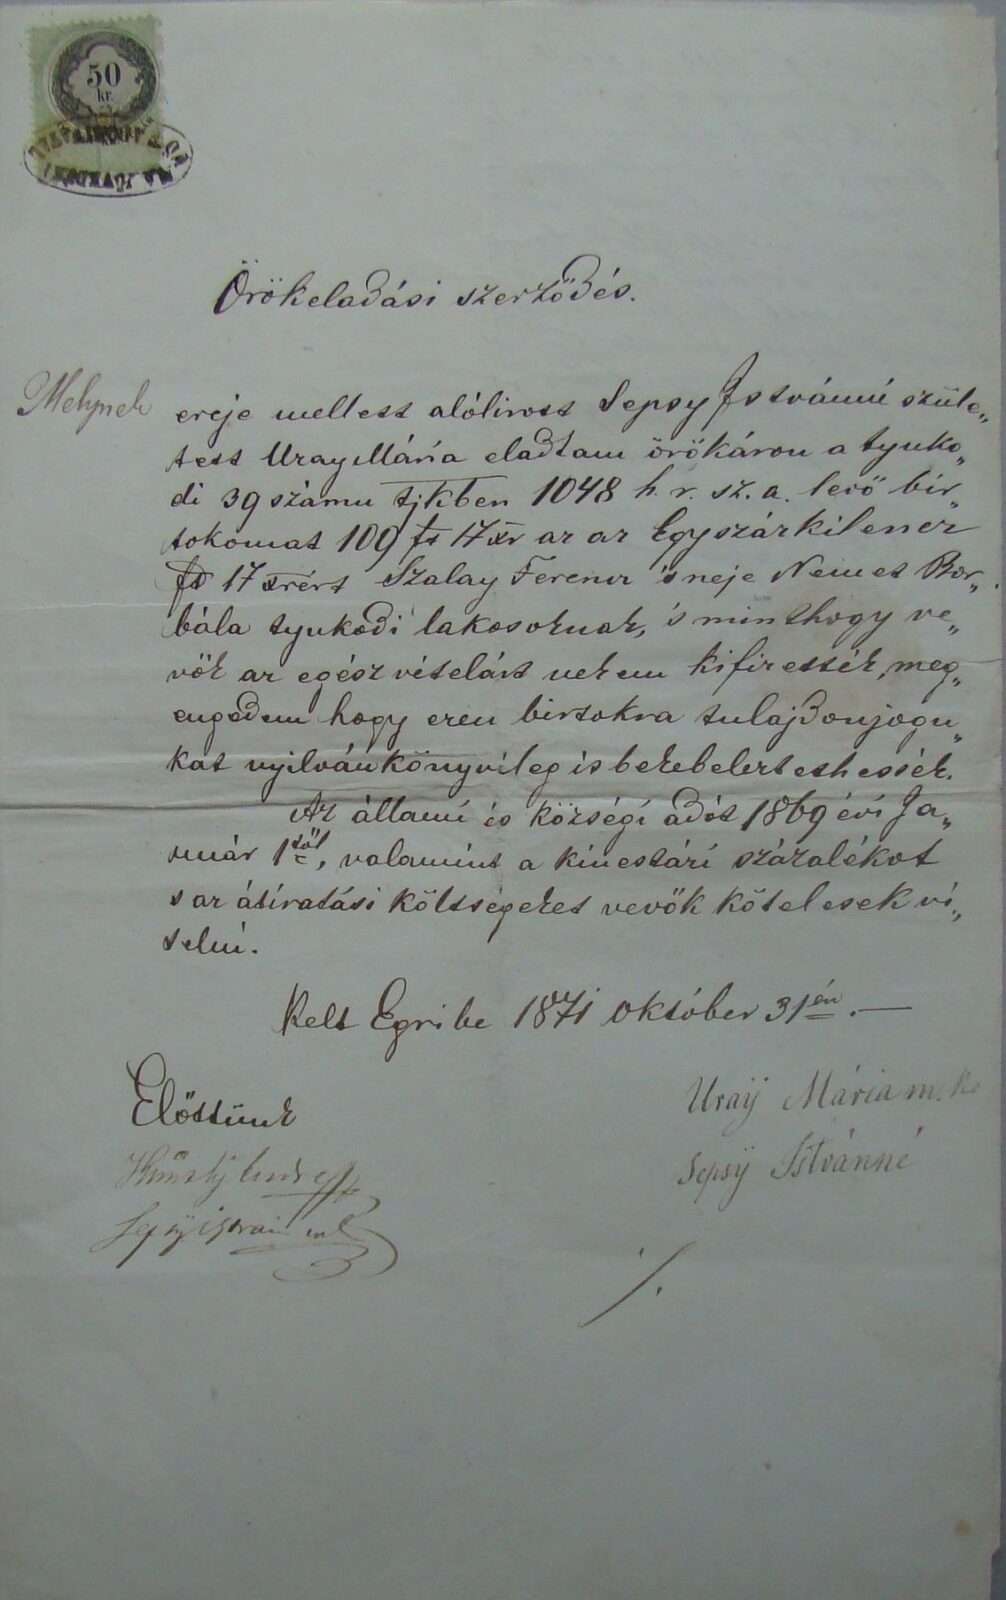 50
kr.
Örökeladási szerződés.
Melynek ereje mellett alólirott Sepsy Istvánné szüle„
tett Uray Mária eladtam örökáron a tyuko„
di 39 számu tjkben 1048 h. r. sz. a. levő bir„
tokomat 109 ft 17 xr az az Egyszázkilencz
ft 17 xrért Szalay Ferencz 's neje Nemet Bor„
bála tyukodi lakosoknak, 's minthogy ve„
vők az egész vételárt nekem kifizették, meg„
engedem hogy ezen birtokra tulajdonjogu„
kat nyilvánkönyvileg is bekebeleztethessék.
Az állami és községi adót 1869 évi Ja„
nuár 1től, valamint a kincstári százalékot
s az átiratási költségeket vevők kötelesek vi„
selni.
Kelt Egribe 1871 október 31én. —
Előttünk
Uraÿ Mária m. k.
Sepsÿ Istvánné
Sepsÿ István mk